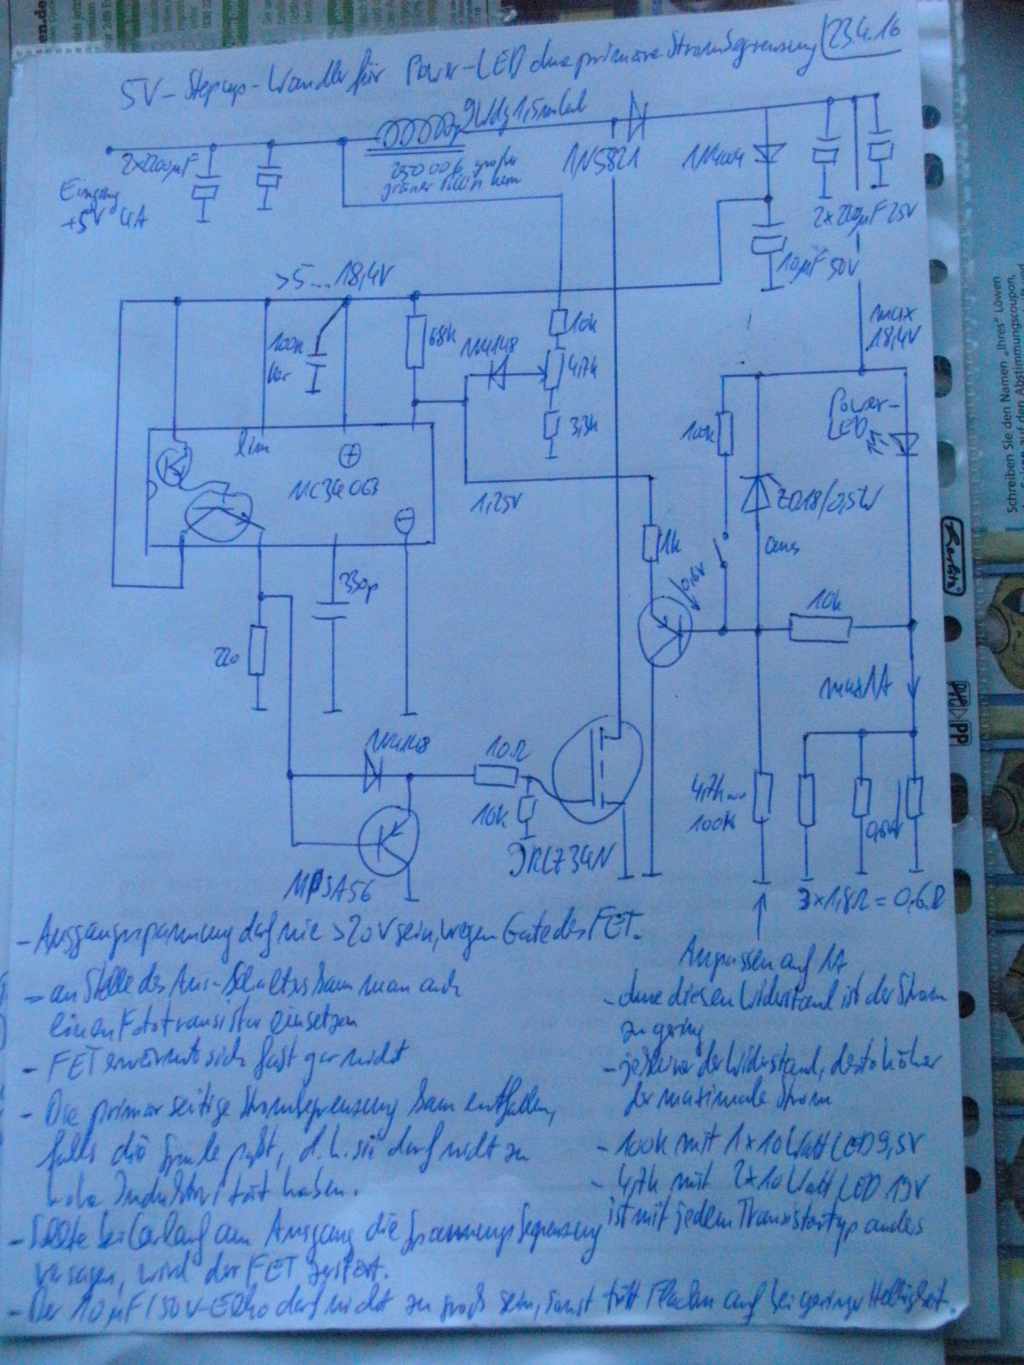 5V-Stepup-Wandler für Power-LED ohne primäre Strombegrenzung 23.4.16
9Wdg 1,5mm
2x2200µF
Eingang
+5V 4A
grüner
1N5821
1N4004
2x220µF 25V
10µF 50V
>5...18,4V
max
18,4V
100n
68k
1N4148
10k
4,7k
3,3k
lim
MC34063
1,25V
Power-
LED
ZD18/0,5W
aus
1k
0,6V
10k
330p
220
max 1A
1N4148
10Ω
10k
MPSA56
IRLZ34N
4,7k...
100k
3x1,8Ω = 0,6Ω
- Ausgangsspannung darf nie >20V sein, wegen Gate des FET.
- an Stelle des Aus-Schalters kann man auch
einen Fototransistor einsetzen
- FET erwärmt sich fast gar nicht
- Die primärseitige Strombegrenzung kann entfallen,
falls die Spule paßt, d.h. sie darf nicht zu
hohe Induktivität haben.
- Sollte bei Leerlauf am Ausgang die Spannungsbegrenzung
versagen, wird der FET zerstört.
- Der 10µF/50V-Elko darf nicht zu groß sein, sonst tritt Flackern auf bei geringer Helligkeit.
Anpassen auf 1A
- ohne diesen Widerstand ist der Strom
zu gering
- je kleiner der Widerstand, desto höher
der maximale Strom
- 100k mit 1x10Watt LED 9,5V
- 4,7k mit 2x10Watt LED 19V
ist mit jedem Transistortyp anders
Schreiben Sie den Namen „Ihres" Löwen
auf den Abstimmungscoupon,